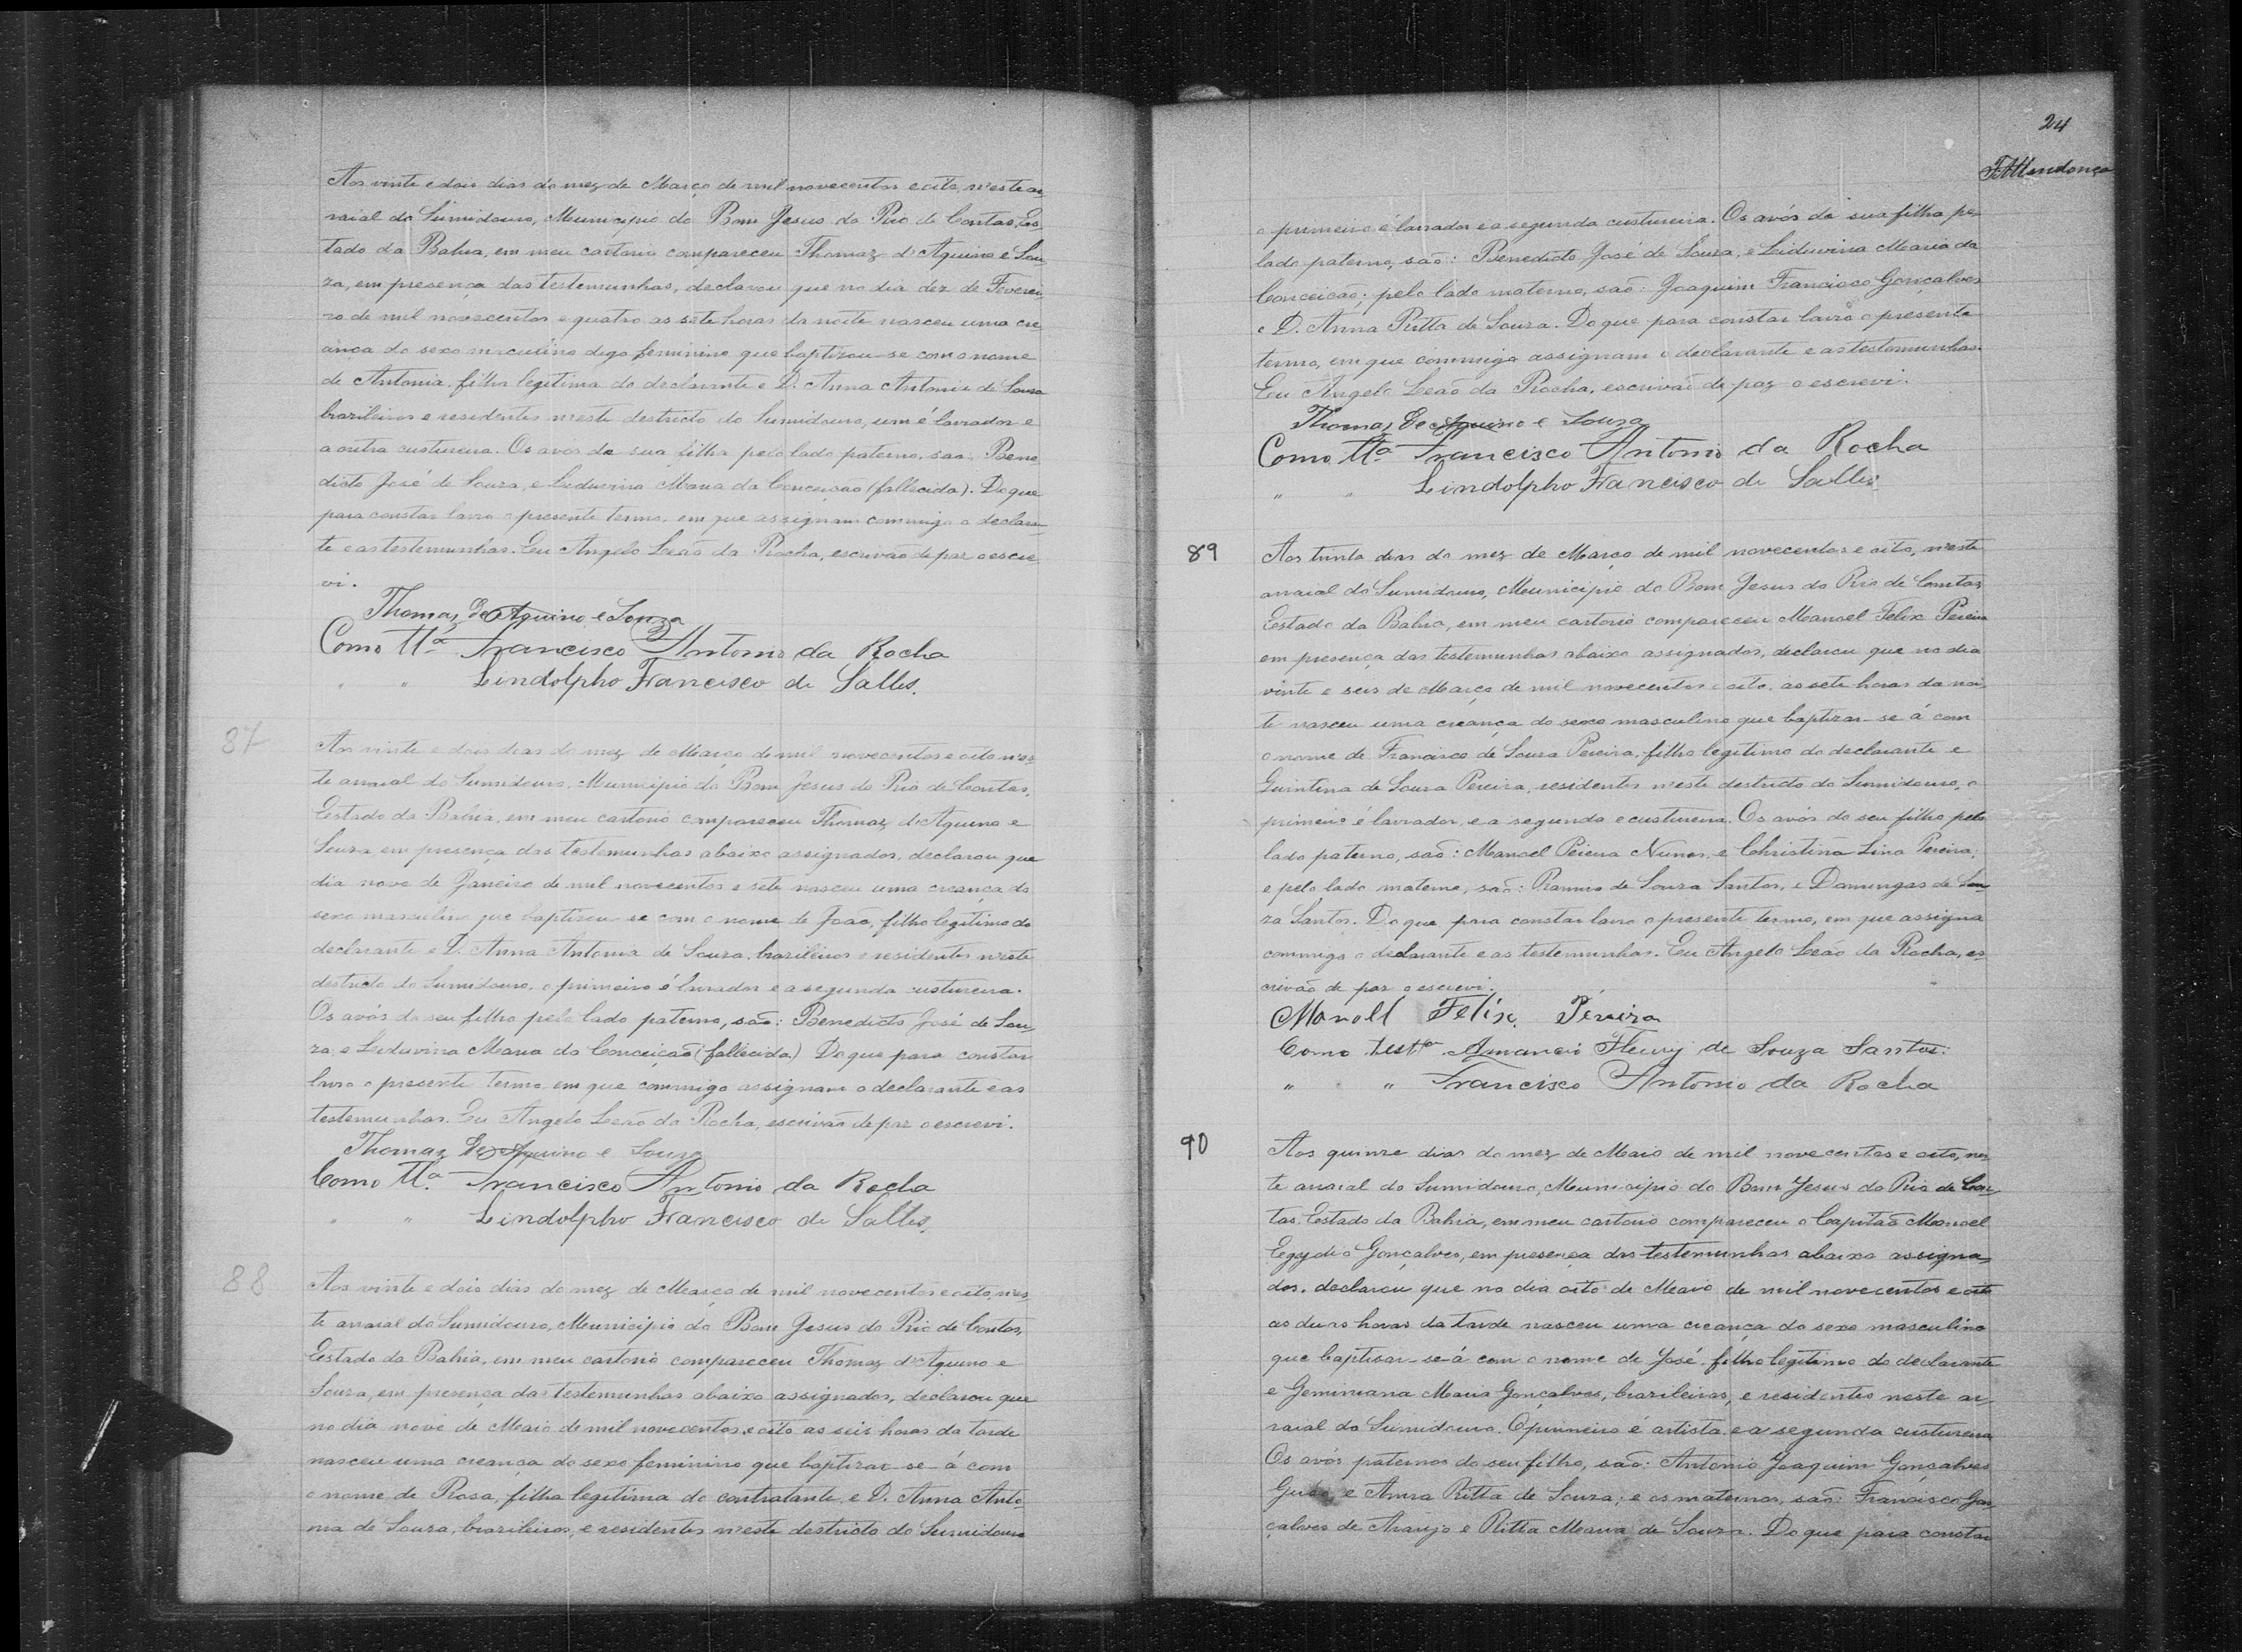 Aos vinte e dois dias do mez de Março de mil novecentos e oito, n'este ar-
raial do Sumidouro, Municipio do Bom Jesus do Rio de Contas, Es-
tado da Bahia, em meu cartorio compareceu Thomaz d'Aquino e Sou-
za, em presença das testemunhas, declarou que no dia dez de Feverei-
ro de mil novecentos e quatro as sete horas da noite nasceu uma cre-
ança do sexo masculino digo feminino que baptizou-se com o nome
de Antonia, filha legitima do declarante e D. Anna Antonia de Souza
brazileiros e residentes n'este destricto do Sumidouro, um é lavrador e
a outra custureira. Os avós de sua filha pelo lado paterno, são: Bene-
dicto José de Souza, e Leduvina Maria da Conceição (fallecida). Do que
para constar lavro o presente termo, em que assignam commigo o declaran-
te e as testemunhas. Eu Angelo Leão da Rocha, escrivão de paz o escre-
vi.
Thomaz De Aquino e Souza
Como tta Francisco Antonio da Rocha
" " Lindolpho Francisco de Salles.
87
Aos vinte e dois dias do mez de Março de mil novecentos e oito n'es-
te arraial do Sumidouro, Municipio do Bom Jesus do Rio de Contas,
Estado da Bahia, em meu cartorio compareceu Thomaz d'Aquino e
Souza, em presença das testemunhas abaixo assignados, declarou que
dia nove de Janeiro de mil novecentos e sete nasceu uma creança do
sexo masculino que baptizou-se com o nome de João, filho legitimo do
declarante e D. Anna Antonia de Souza, brazileiros e residentes n'este
destricto do Sumidouro, o primeiro é lavrador e a segunda custureira.
Os avós do seu filho pelo lado paterno, são: Benedicto José de Sou-
za, e Leduvina Maria da Conceição (fallecida) Do que para constar
lavro o presente termo, em que commigo assignam o declarante e as
testemunhas. Eu Angelo Leão da Rocha, escrivão de paz o escrevi.
Thomaz De Aquino e Souza
Como tta. Francisco Antonio da Rocha
" " Lindolpho Francisco de Salles.
88
Aos vinte e dois dias do mez de Março de mil novecentos e oito, n'es-
te arraial do Sumidouro, Municipio do Bom Jesus do Rio de Contas,
Estado da Bahia, em meu cartorio compareceu Thomaz d'Aquino e
Souza, em presença das testemunhas abaixo assignados, declarou que
no dia nove de Maio de mil novecentos e oito as seis horas da tarde
nasceu uma creança do sexo feminino que baptizar-se-á com
o nome de Rosa, filha legitima do contratante, e D. Anna Anto-
nia de Souza, brazileiros, e residentes n'este destricto do Sumidouro
24
F.A.Mendonça
o primeiro é lavrador e a segunda custureira. Os avós da sua filha pe-
lado paterno, são: Benedicto José de Souza, e Leiduvina Maria da
Conceição; pelo lado materno, são: Joaquim Francisco Gonçalves
e D. Anna Ritta de Souza. Do que para constar lavro o presente
termo, em que commigo assignam o declarante e as testemunhas.
Eu Angelo Leão da Rocha, escrivão de paz o escrevi.
Thomaz De Aquino e Souza
Como tta Francisco Antonio da Rocha
" " Lindolpho Francisco de Salles.
89
Aos trinta dias do mez de Março de mil novecentos e oito, n'este
arraial do Sumidouro, Municipio do Bom Jesus do Rio de Contas,
Estado da Bahia, em meu cartorio compareceu Manoel Felix Pereira
em presença das testemunhas abaixo assignados, declarou que no dia
vinte e seis de Março de mil novecentos e oito, as sete horas da noi-
te nasceu uma creança do sexo masculino que baptizar-se á com
o nome de Francisco de Souza Pereira, filho legitimo do declarante e
Quintina de Souza Pereira, residentes n'este destricto do Sumidouro, o
primeiro é lavrador, e a segunda e custureira. Os avós do seu filho pelo
lado paterno, são: Manoel Pereira Nunes, e Christina Lina Pereira;
e pelo lado materno, são: Ramiro de Souza Santos, e Domingas de Sou-
za Santos. Do que para constar lavro o presente termo, em que assigna
commigo o declarante e as testemunhas. Eu Angelo Leão da Rocha, es-
crivão de paz o escrevi.
Manoll Felix Pereira
Como testa Amancio Fleury de Souza Santos.
" " Francisco Antonio da Rocha
90
Aos quinze dias do mez de Maio de mil novecentos e oito, nes-
te arraial do Sumidouro, Municipio do Bom Jesus do Rio de Con-
tas, Estado da Bahia, em meu cartorio compareceu o Capitão Manoel
Egydio Gonçalves, em presença das testemunhas abaixo assigna-
dos, declarou que no dia oito de Maio de mil novecentos e oito
as duas horas da tarde nasceu uma creança do sexo masculino
que baptisar-se-á com o nome de José, filho legitimo do declarante
e Geminiana Maria Gonçalves, brazileiros, e residentes neste ar-
raial do Sumidouro. O primeiro é artista e a segunda custureira
Os avós paternos do seu filho, são: Antonio Joaquim Gonçalves
e Anna Ritta de Souza; e os maternos, são: Francisco Gon-
çalves de Araujo e Ritta Maria de Souza. Do que para constar